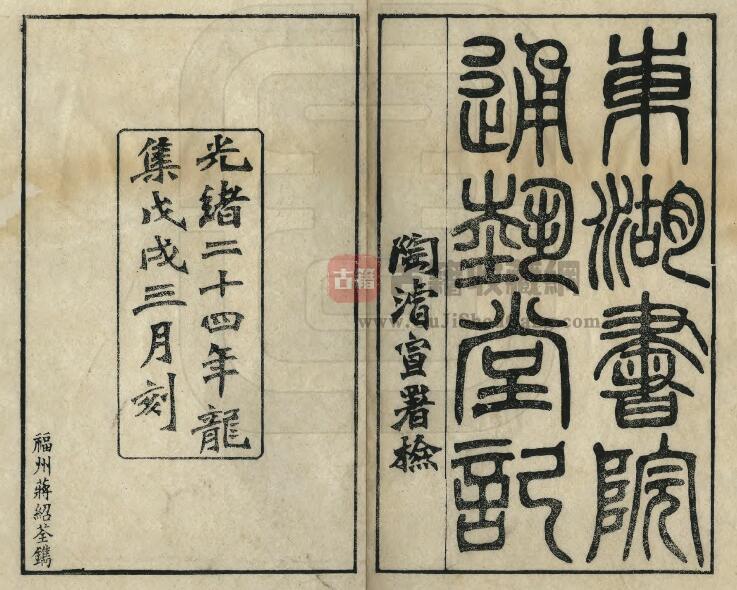 東湖書院
通埶堂記
陶濬宣署檢
光緒二十四年龍
集戊戌三月刻
福州蔣紹荃鐫
古籍